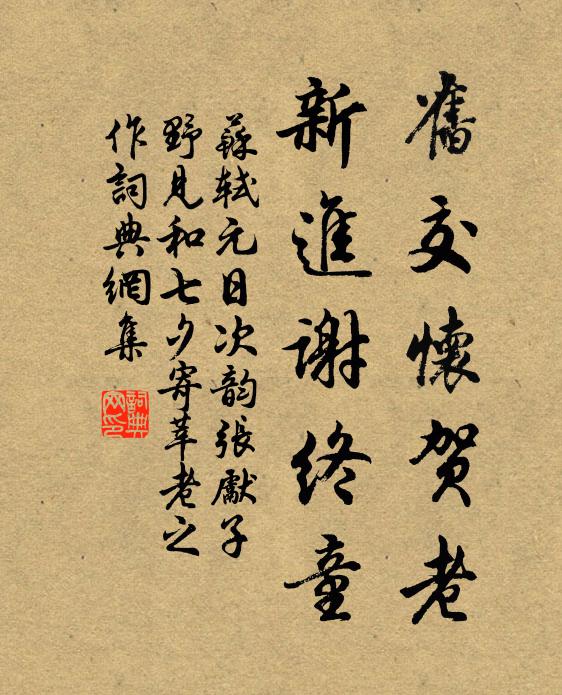 舊交懷賀老
新進謝終童
蘇軾元日次韵張獻子
野見和七夕寄莘老之
作詞典網集
詞典
网印